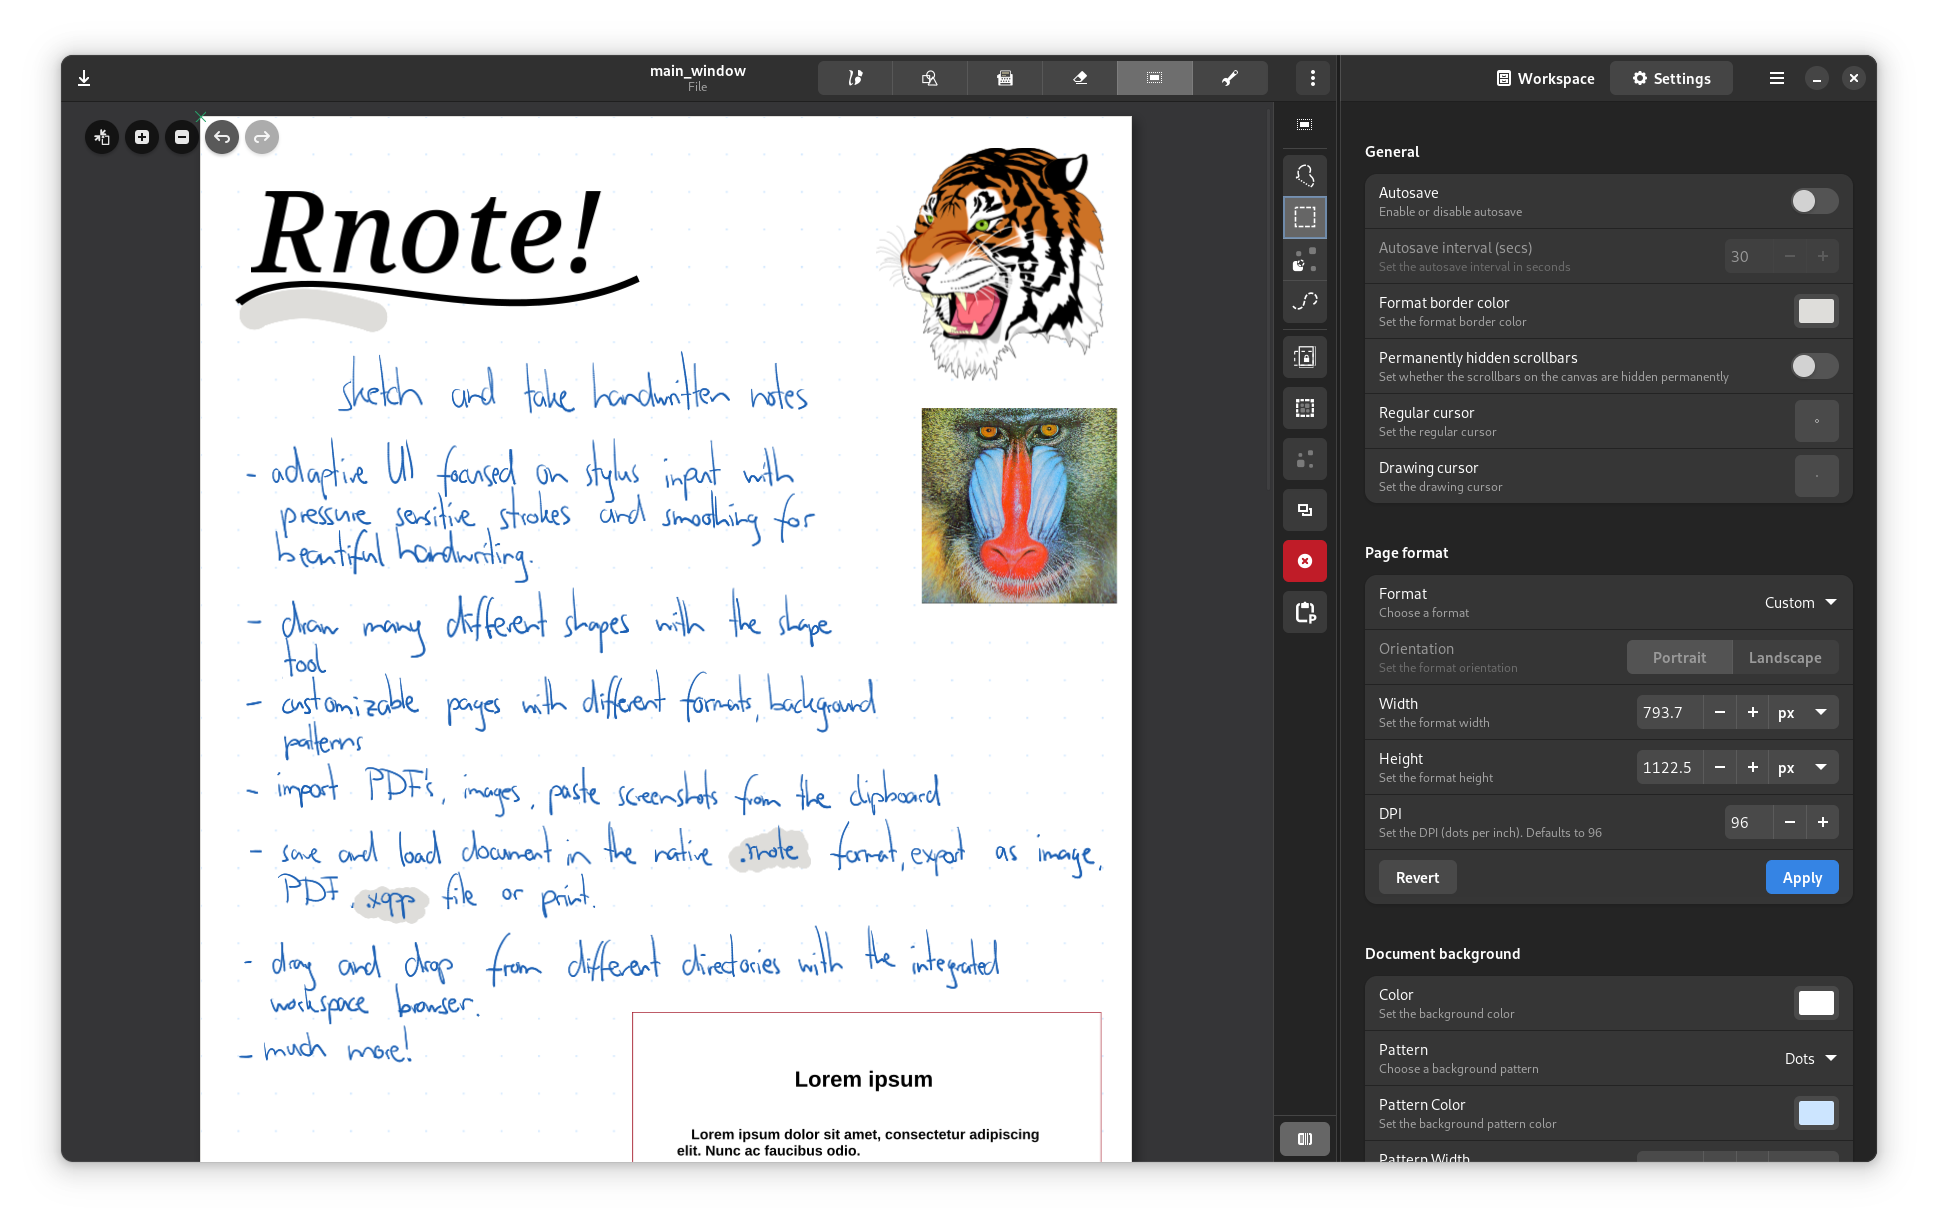 main_window
File
Workspace
Settings
Rnote!
sketch and take handwritten notes
- adaptive UI focused on stylus input with
pressure sensitive strokes and smoothing for
beautiful handwriting.
- draw many different shapes with the shape
tool
- customizable pages with different formats, background
patterns
- import PDF's, images, paste screenshots from the clipboard
- save and load document in the native .rnote format, export as image,
PDF, .xopp file or print.
- drag and drop from different directories with the integrated
workspace browser.
- much more!
Lorem ipsum
Lorem ipsum dolor sit amet, consectetur adipiscing
elit. Nunc ac faucibus odio.
General
Autosave
Enable or disable autosave
Autosave interval (secs)
Set the autosave interval in seconds
30
Format border color
Set the format border color
Permanently hidden scrollbars
Set whether the scrollbars on the canvas are hidden permanently
Regular cursor
Set the regular cursor
Drawing cursor
Set the drawing cursor
Page format
Format
Choose a format
Custom
Orientation
Set the format orientation
Portrait
Landscape
Width
Set the format width
793.7
px
Height
Set the format height
1122.5
px
DPI
Set the DPI (dots per inch). Defaults to 96
96
Revert
Apply
Document background
Color
Set the background color
Pattern
Choose a background pattern
Dots
Pattern Color
Set the background pattern color
Pattern Width